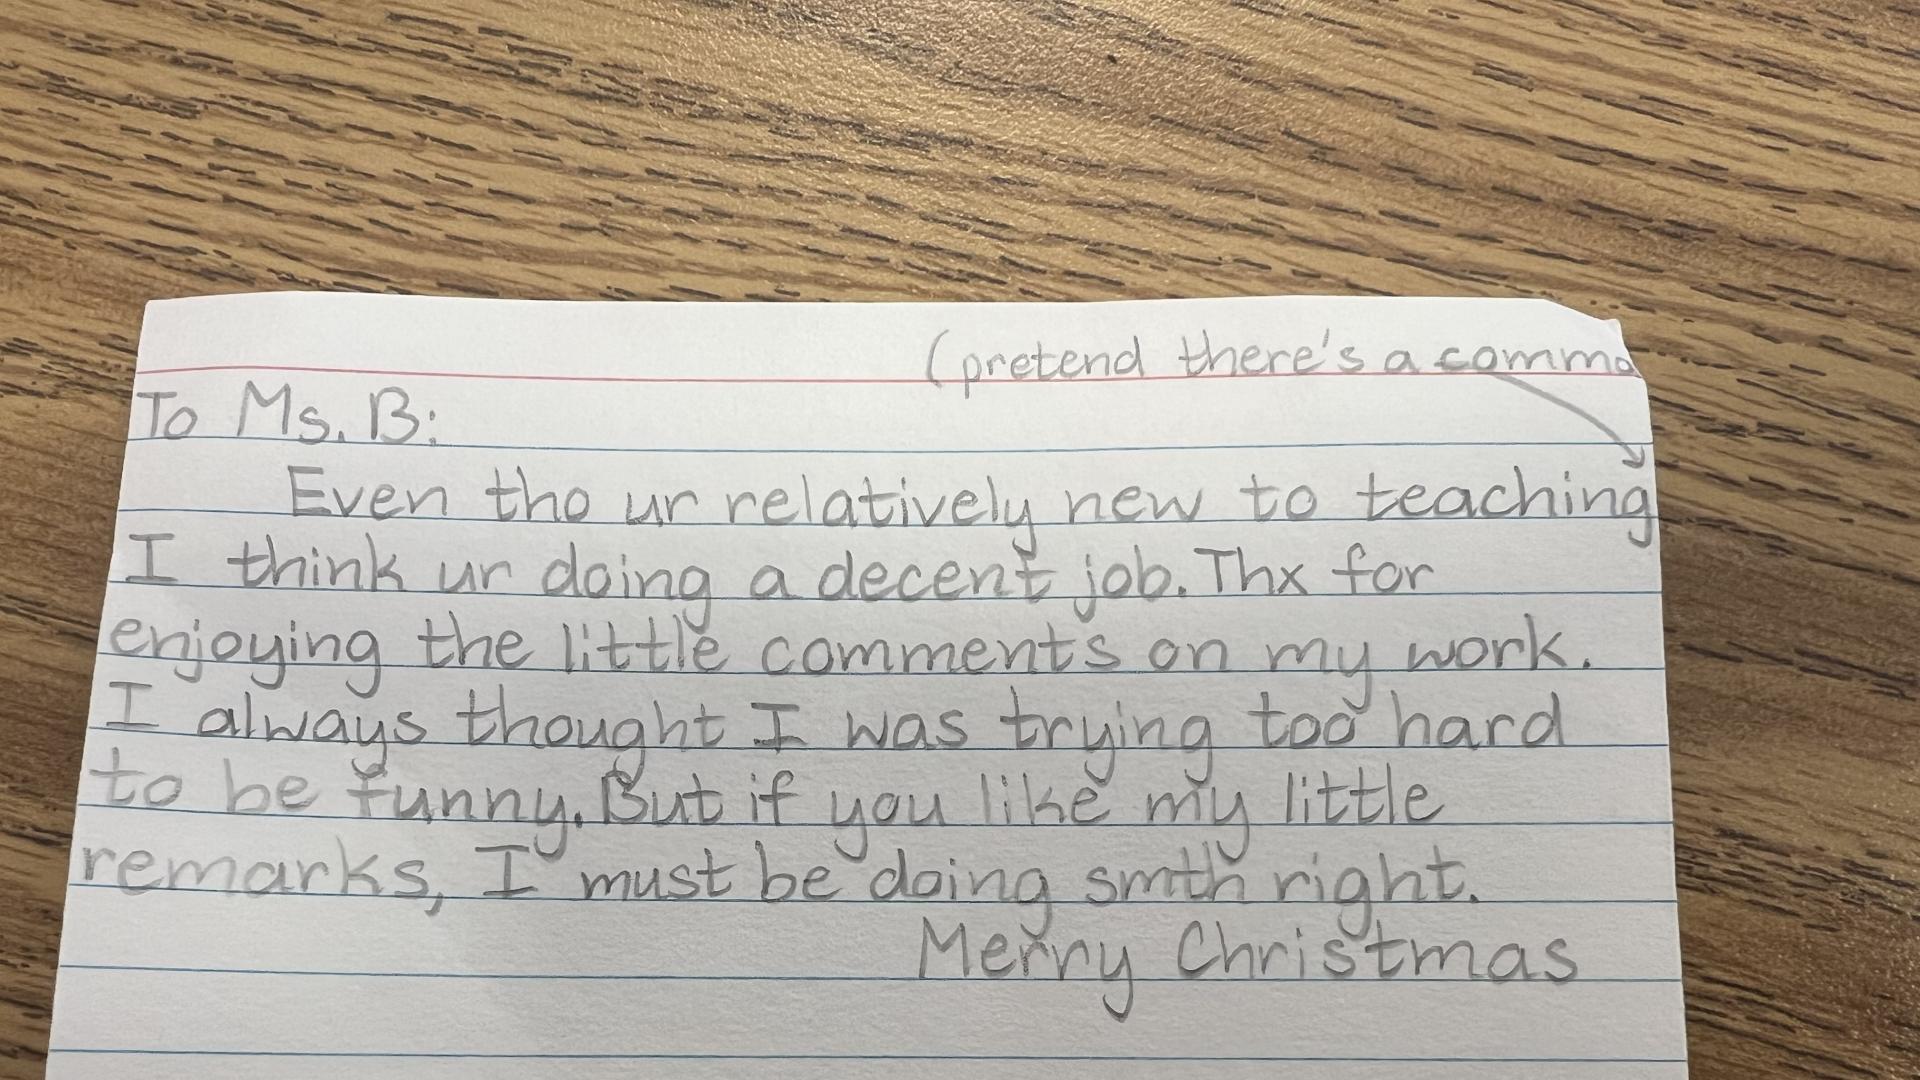 (pretend there's a comma
To Ms. B:
Even tho ur relatively new to teaching
I think ur doing a decent job. Thx for
enjoying the little comments on my work.
I always thought I was trying too hard
to be funny. But if you like my little
remarks, I must be doing smth right.
Merry Christmas